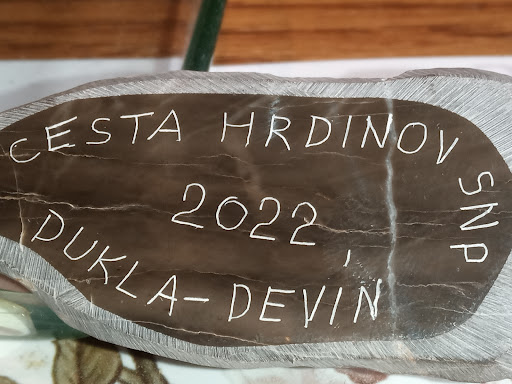 CESTA HRDINOV SNP
2022
DUKLA-DEVÍN